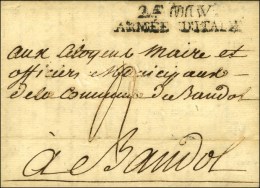 ARMÉE D'ITALIE
aux Citoyens Maire et
officiers Municipaux
de la Commune de Bandol
à Bandol